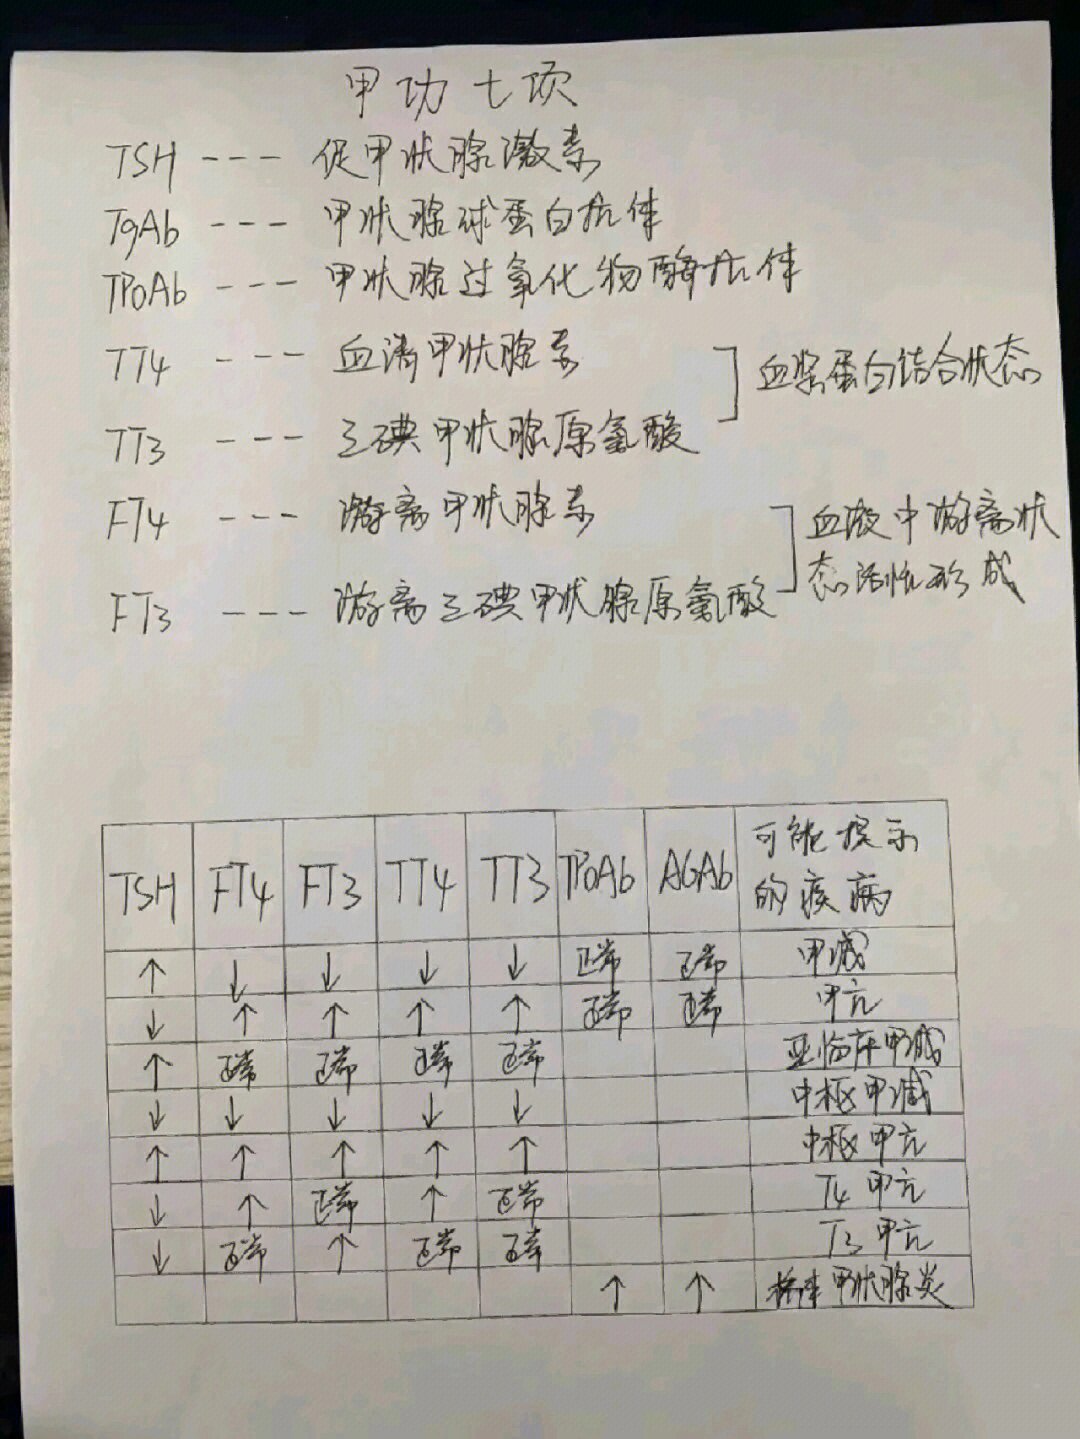 甲功七项
TSH --- 促甲状腺激素
TgAb --- 甲状腺球蛋白抗体
TPoAb --- 甲状腺过氧化物酶抗体
TT4 --- 血清甲状腺素
血浆蛋白结合状态
TT3 --- 三碘甲状腺原氨酸
FT4 --- 游离甲状腺素
血液中游离状
态活性形成
FT3 --- 游离三碘甲状腺原氨酸
TSH FT4 FT3 TT4 TT3 TPoAb AGAb 可能提示的疾病
↑ ↓ ↓ ↓ ↓ 正常 正常 甲减
↓ ↑ ↑ ↑ ↑ 正常 正常 甲亢
↑ 正常 正常 正常 正常 亚临床甲减
↓ ↓ ↓ ↓ ↓ 中枢甲减
↑ ↑ ↑ ↑ ↑ 中枢甲亢
↓ ↑ 正常 ↑ 正常 T4甲亢
↓ 正常 ↑ 正常 正常 T3甲亢
↑ ↑ 桥本甲状腺炎